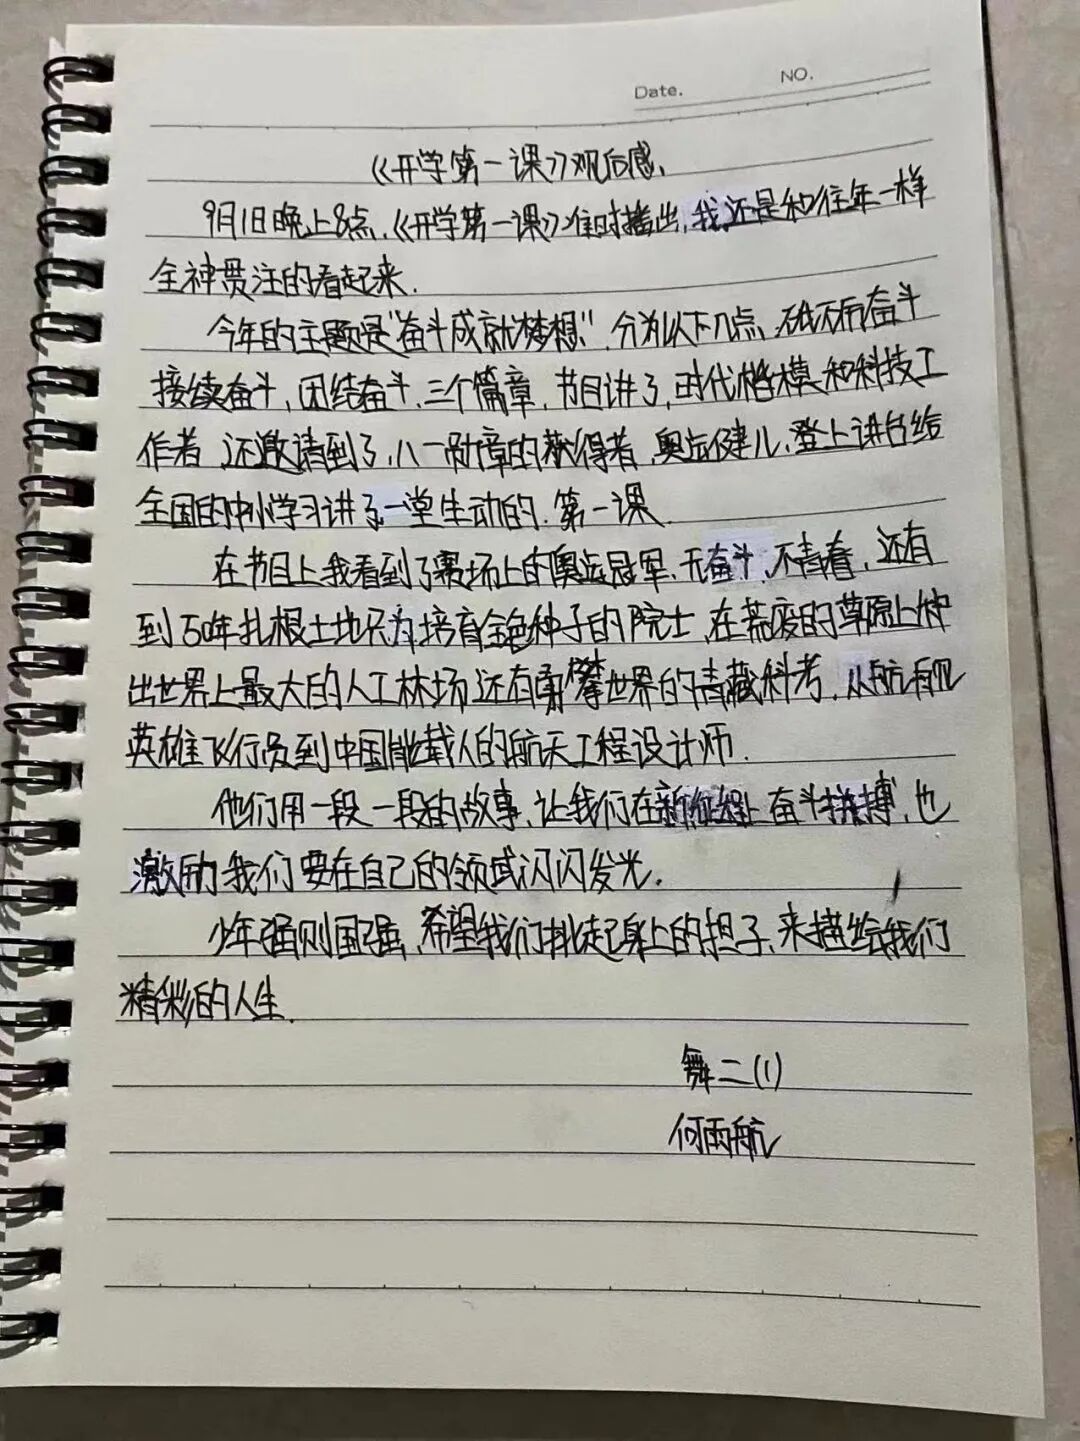 Date.
NO.
《开学第一课》观后感.
9月1日晚上8点.《开学第一课》准时播出,我还是和往年一样
全神贯注的看起来.
今年的主题是"奋斗成就梦想".分为以下几点.砥砺奋斗
接续奋斗,团结奋斗.三个篇章.节目讲了,时代楷模和科技工
作者 还邀请到了,八一勋章的获得者.奥运健儿.登上讲台给
全国的中小学习讲了一堂生动的.第一课.
在节目上我看到了赛场上的奥运冠军.无奋斗.不青春.还有
到50年扎根土地只为培育金色种子的院士 在荒废的草原上种
出世界上最大的人工林场还有勇攀世界的青藏科考.从航
英雄飞行员到中国能载人的航天工程设计师.
他们用一段一段的故事.让我们在新征程上奋斗拼搏.也
激励我们要在自己的领域闪闪发光.
少年强则国强.希望我们挑起身上的担子.来描绘我们
精彩的人生.
舞二(1)
何雨航